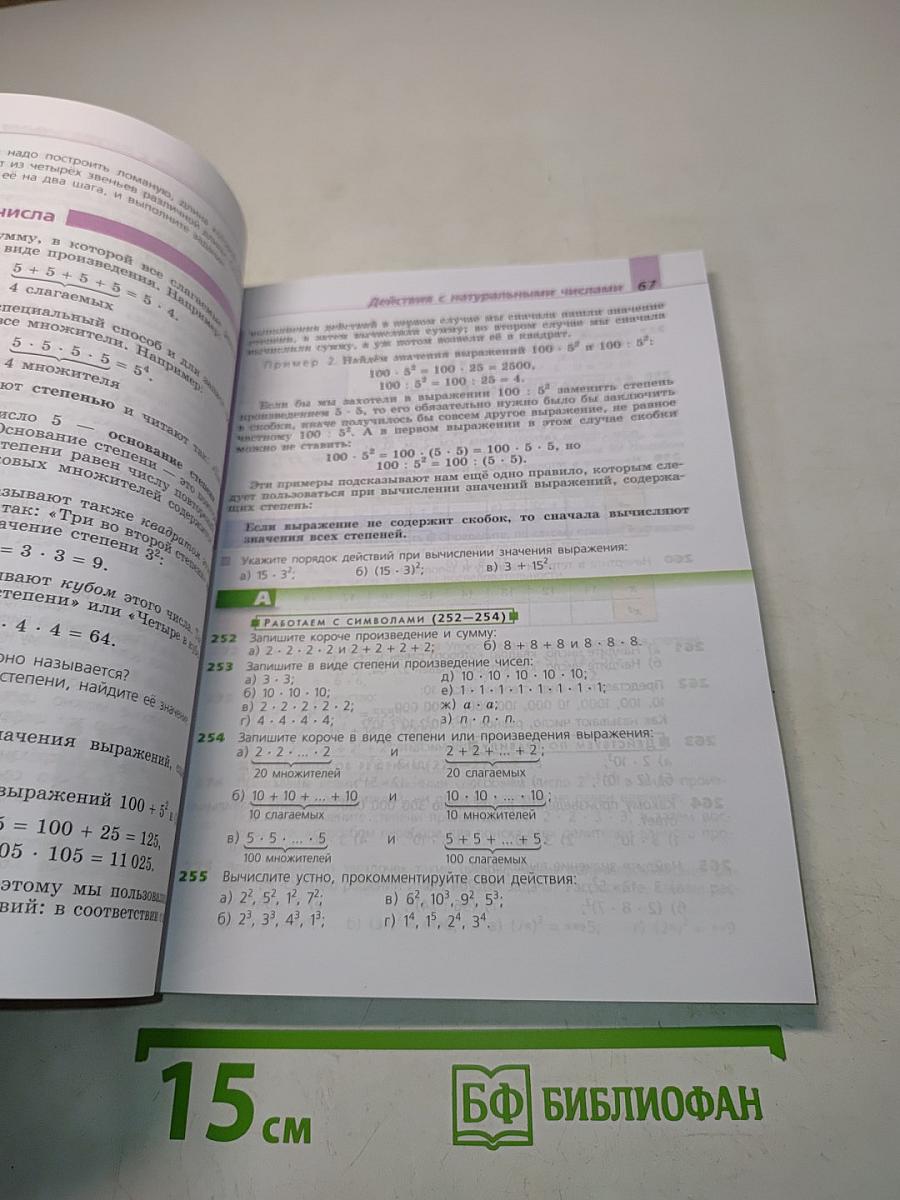 надо построить ломаную, длина
т из четырёх звеньев различной
её на два шага, и выполните
числа
умму, в которой все слагаемые
виде произведения. Например:
5 + 5 + 5 + 5 = 5 · 4.
4 слагаемых
специальный способ и для
все множители. Например:
5 · 5 · 5 · 5 = 5⁴.
4 множителя
ют степенью и читают так:
число 5 — основание степени
Основание степени — это
степени равен числу
ковых множителей
зывают также квадратом
так: «Три во второй степени»
ачение степени 3²:
= 3 · 3 = 9.
ывают кубом этого числа.
степени» или «Четыре в кубе
· 4 · 4 = 64.
оно называется?
степени, найдите её значение
начения выражений,
выражений 100 + 5²
5 = 100 + 25 = 125,
05 · 105 = 11 025.
оэтому мы
вий: в соответствие с
Действия с натуральными числами 67
выполнения действий в первом случае мы сначала нашли значение
степени, а затем вычислили сумму; во втором случае мы сначала
вычислили сумму, а уж потом возвели её в квадрат.
Пример 2. Найдём значения выражений 100 · 5² и 100 : 5²:
100 · 5² = 100 · 25 = 2500,
100 : 5² = 100 : 25 = 4.
Если бы мы захотели в выражении 100 : 5² заменить степень
произведением 5 · 5, то его обязательно нужно было бы заключить
в скобки, иначе получилось бы совсем другое выражение, не равное
частному 100 : 5². А в первом выражении в этом случае скобки
можно не ставить:
100 · 5² = 100 · (5 · 5) = 100 · 5 · 5, но
100 : 5² = 100 : (5 · 5).
Эти примеры подсказывают нам ещё одно правило, которым сле-
дует пользоваться при вычислении значений выражений, содержа-
щих степень:
Если выражение не содержит скобок, то сначала вычисляют
значения всех степеней.
Укажите порядок действий при вычислении значения выражения:
а) 15 · 3²; б) (15 · 3)²; в) 3 + 15².
А
Работаем с символами (252—254)
252 Запишите короче произведение и сумму:
а) 2 · 2 · 2 · 2 и 2 + 2 + 2 + 2; б) 8 + 8 + 8 и 8 · 8 · 8.
253 Запишите в виде степени произведение чисел:
а) 3 · 3; д) 10 · 10 · 10 · 10 · 10;
б) 10 · 10 · 10; е) 1 · 1 · 1 · 1 · 1 · 1 · 1 · 1;
в) 2 · 2 · 2 · 2 · 2; ж) a · a;
г) 4 · 4 · 4 · 4; з) n · n · n.
254 Запишите короче в виде степени или произведения выражения:
а) 2 · 2 · ... · 2 и 2 + 2 + ... + 2;
20 множителей 20 слагаемых
б) 10 + 10 + ... + 10 и 10 · 10 · ... · 10;
10 слагаемых 10 множителей
в) 5 · 5 · ... · 5 и 5 + 5 + ... + 5.
100 множителей 100 слагаемых
255 Вычислите устно, прокомментируйте свои действия:
а) 2², 5², 1², 7²; в) 6², 10³, 9², 5³;
б) 2³, 3³, 4³, 1³; г) 1⁴, 1⁵, 2⁴, 3⁴.
15 см
БФ БИБЛИОФАН